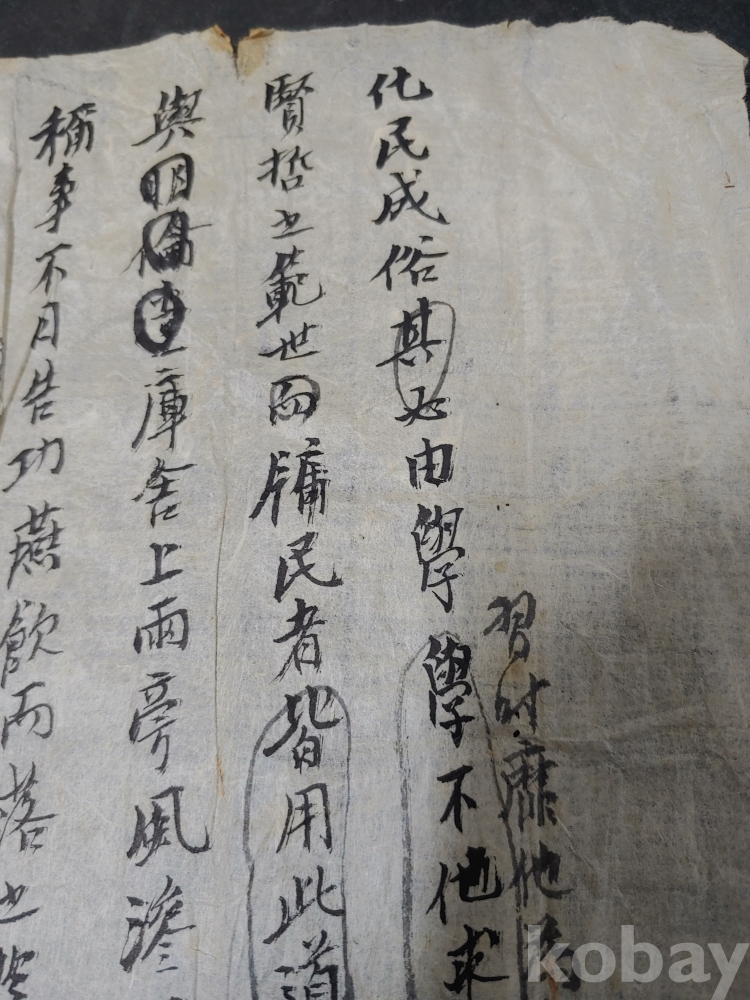 習時靡他
化民成俗其必由學學不他求
賢哲之範世而牖民者皆用此道
與明倫堂庫舍上雨旁風滲
稱事不日告功燕飮而落之
kobay